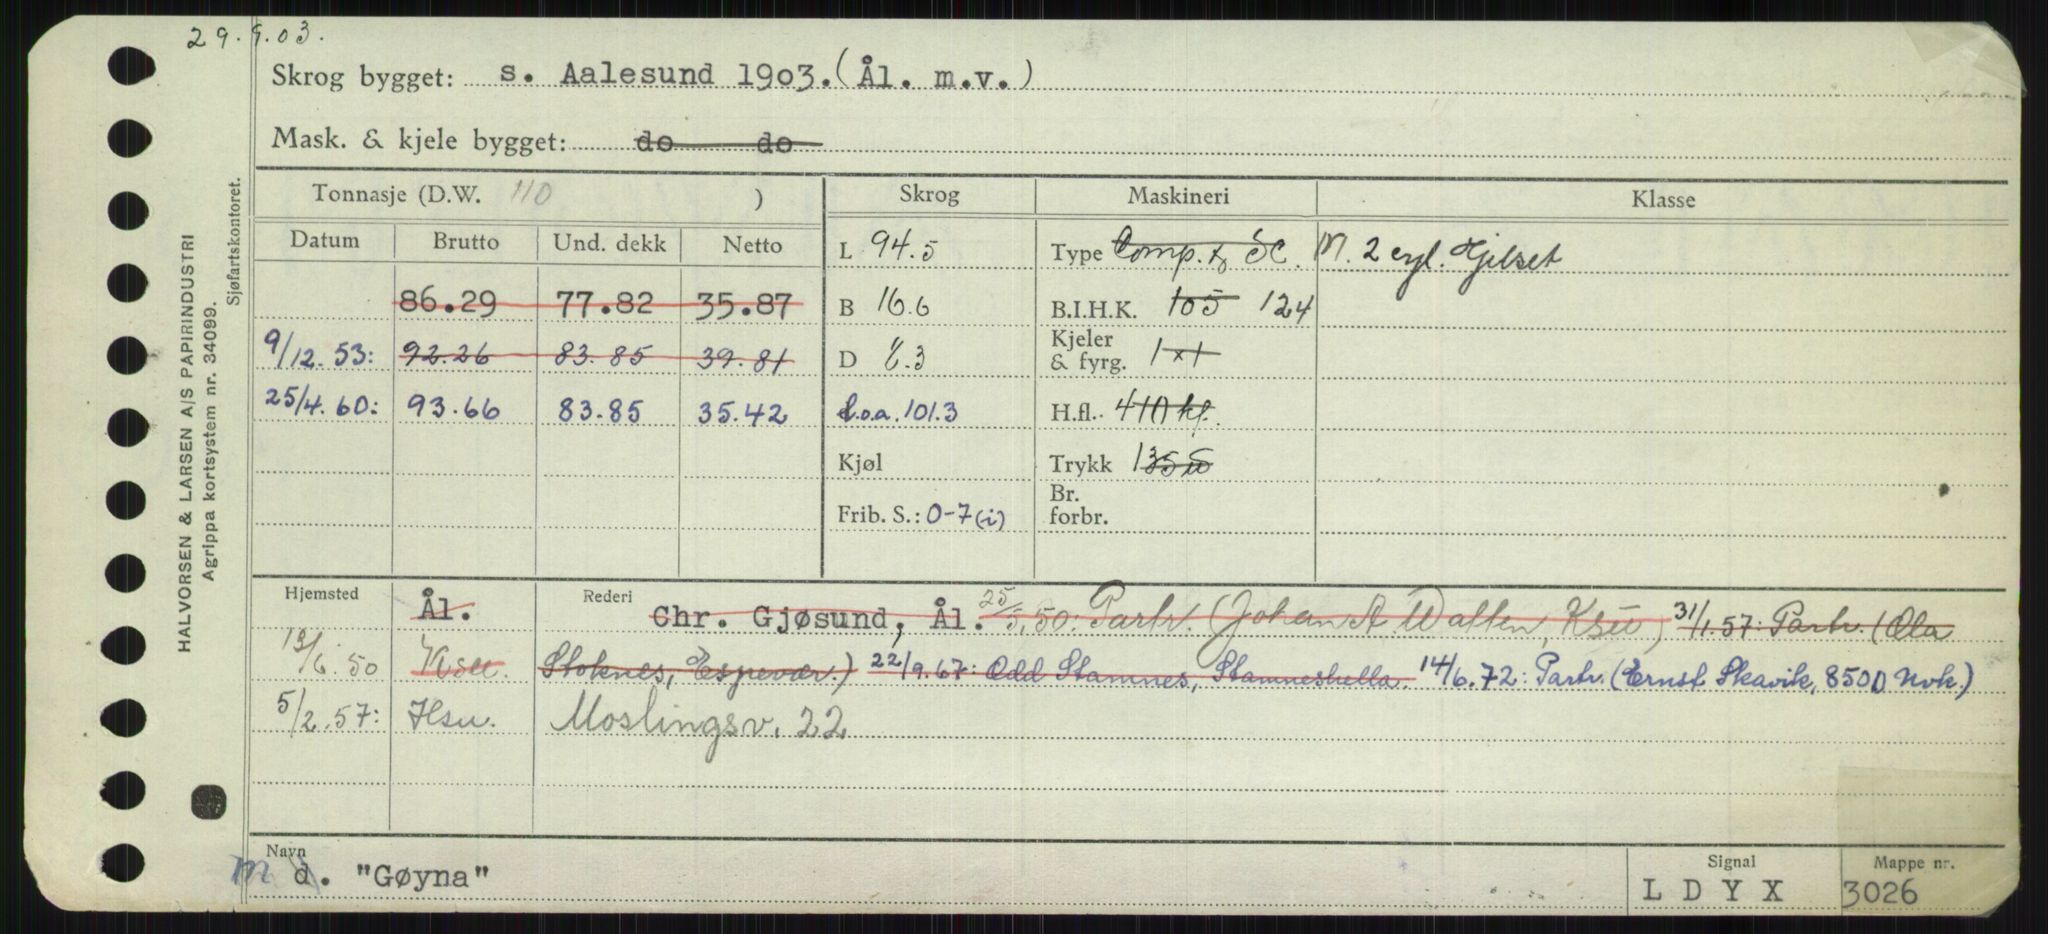 29.9.03.
Skrog bygget: s. Aalesund 1903. (Ål. m.v.)
Mask. & kjele bygget: do do
Tonnasje (D.W. 110 ) Skrog Maskineri Klasse
Datum Brutto Und. dekk Netto L 94.5 Type Comp. & SC. M. 2 cyl. Hjelset
86.29 77.82 35.87 B 16.6 B.I.H.K. 105 124
9/12.53: 92.26 83.85 39.81 D 8.3 Kjeler & fyrg. 1x1
25/4.60: 93.66 83.85 35.42 L.o.a. 101.3 H.fl. 410 kf.
Kjøl Trykk 135
Frib. S.: 0-7 (i) Br. forbr.
Hjemsted Ål. Rederi Chr. Gjøsund, Ål. 25/5.50: Partr. (Johan A. Wallen, Ksu) 31/1.57: Partr. (Ola
13/6.50 Ksu. Stoknes, Espevær.) 22/9.67: Odd Stamnes, Stamneshella. 14/6.72: Partr. (Ernst Skavik, 8500 Nvk.)
5/2.57: Hsu. Moslingsv. 22
Navn m d. "Gøyna" Signal LDYX Mappe nr. 3026
HALVORSEN & LARSEN A/S PAPIRINDUSTRI
Agrippa kortsystem nr. 34099.
Sjøfartskontoret.